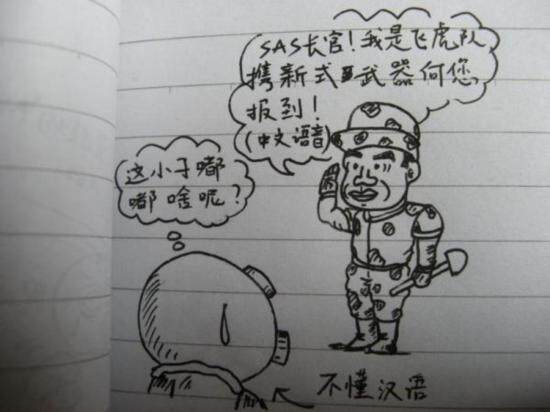 SAS长官！我是飞虎队
携新式武器向您
报到！
(中文语音)
这小子嘟
嘟啥呢？
不懂汉语